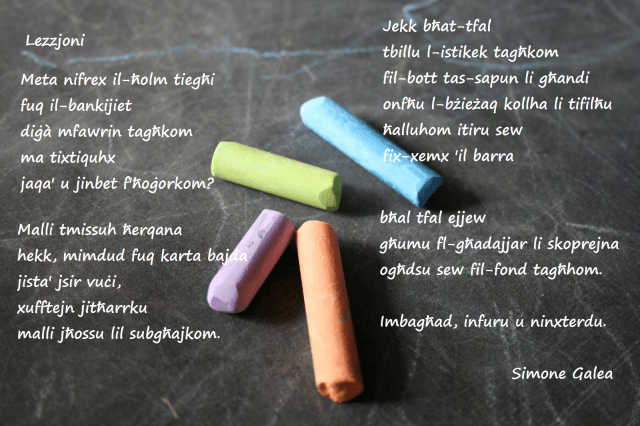 Lezzjoni
Meta nifrex il-ħolm tiegħi
fuq il-bankijiet
diġà mfawrin tagħkom
ma tixtiquhx
jaqa' u jinbet f'ħoġorkom?
Malli tmissuh ħerqana
hekk, mimdud fuq karta bajda
jista' jsir vuċi,
xufftejn jitħarrku
malli jħossu lil subgħajkom.
Jekk bħat-tfal
tbillu l-istikek tagħkom
fil-bott tas-sapun li għandi
onfħu l-bżieżaq kollha li tifilħu
ħalluhom itiru sew
fix-xemx 'il barra
bħal tfal ejjew
għumu fl-għadajjar li skoprejna
ogħdsu sew fil-fond tagħhom.
Imbagħad, infuru u ninxterdu.
Simone Galea